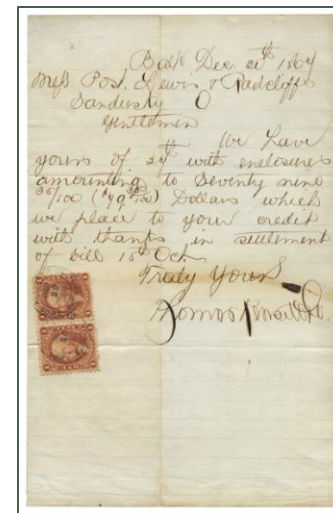 Balto Dec. 26th 1864
Mess. Post, Lewis & Radcliffe
Sandusky O
Gentlemen
We have
yours of 24th with enclosures
amounting to Seventy nine
35/100 ($79 35/100) Dollars which
we place to your credit
with thanks in settlement
of bill 15th Oct.
Truly Yours
Thomas